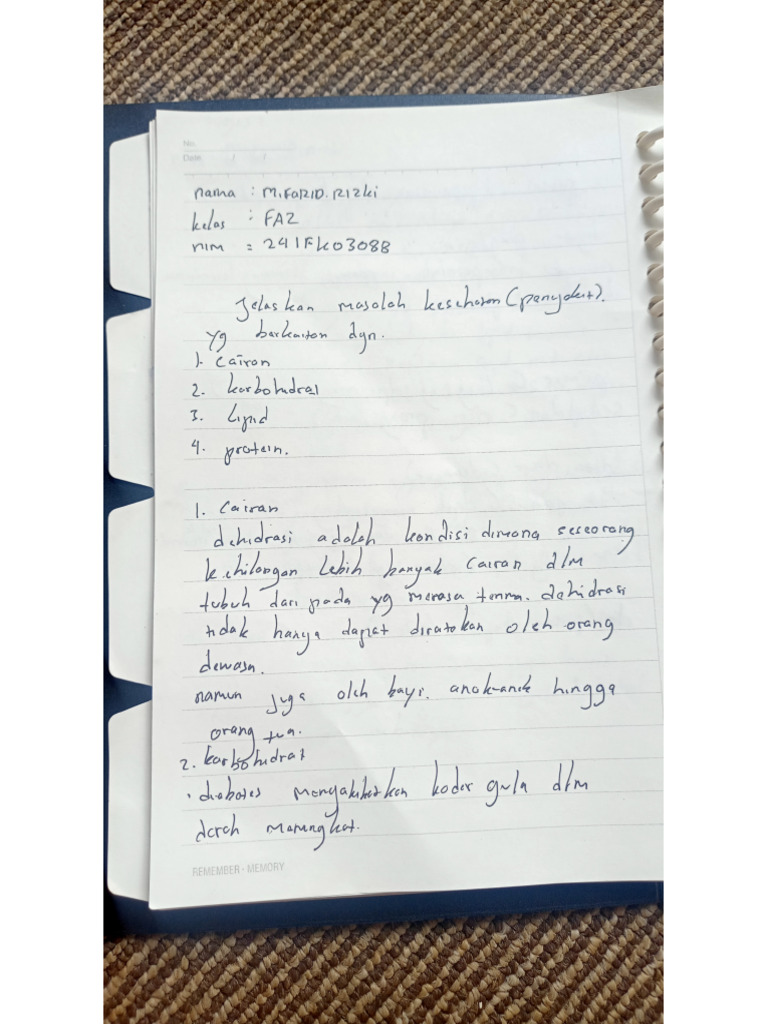 No.
Date / /
nama : M.FARID.RIZki
kelas : FA2
nim = 241FK03088
Jelaskan masalah kesehatan (penyakit).
yg berkaitan dgn.
1. Cairan
2. karbohidrat
3. Lipid
4. protein.
1. Cairan
dehidrasi adalah kondisi dimana seseorang
kehilangan Lebih banyak Cairan dlm
tubuh dari pada yg merasa dehidrasi
tidak hanya dapat dirasakan oleh orang
dewasa.
namun juga oleh bayi. anak-anak hingga
orang tua.
2. karbohidrat
• diabetes mengakibatkan kadar gula dlm
darah meningkat.
REMEMBER - MEMORY